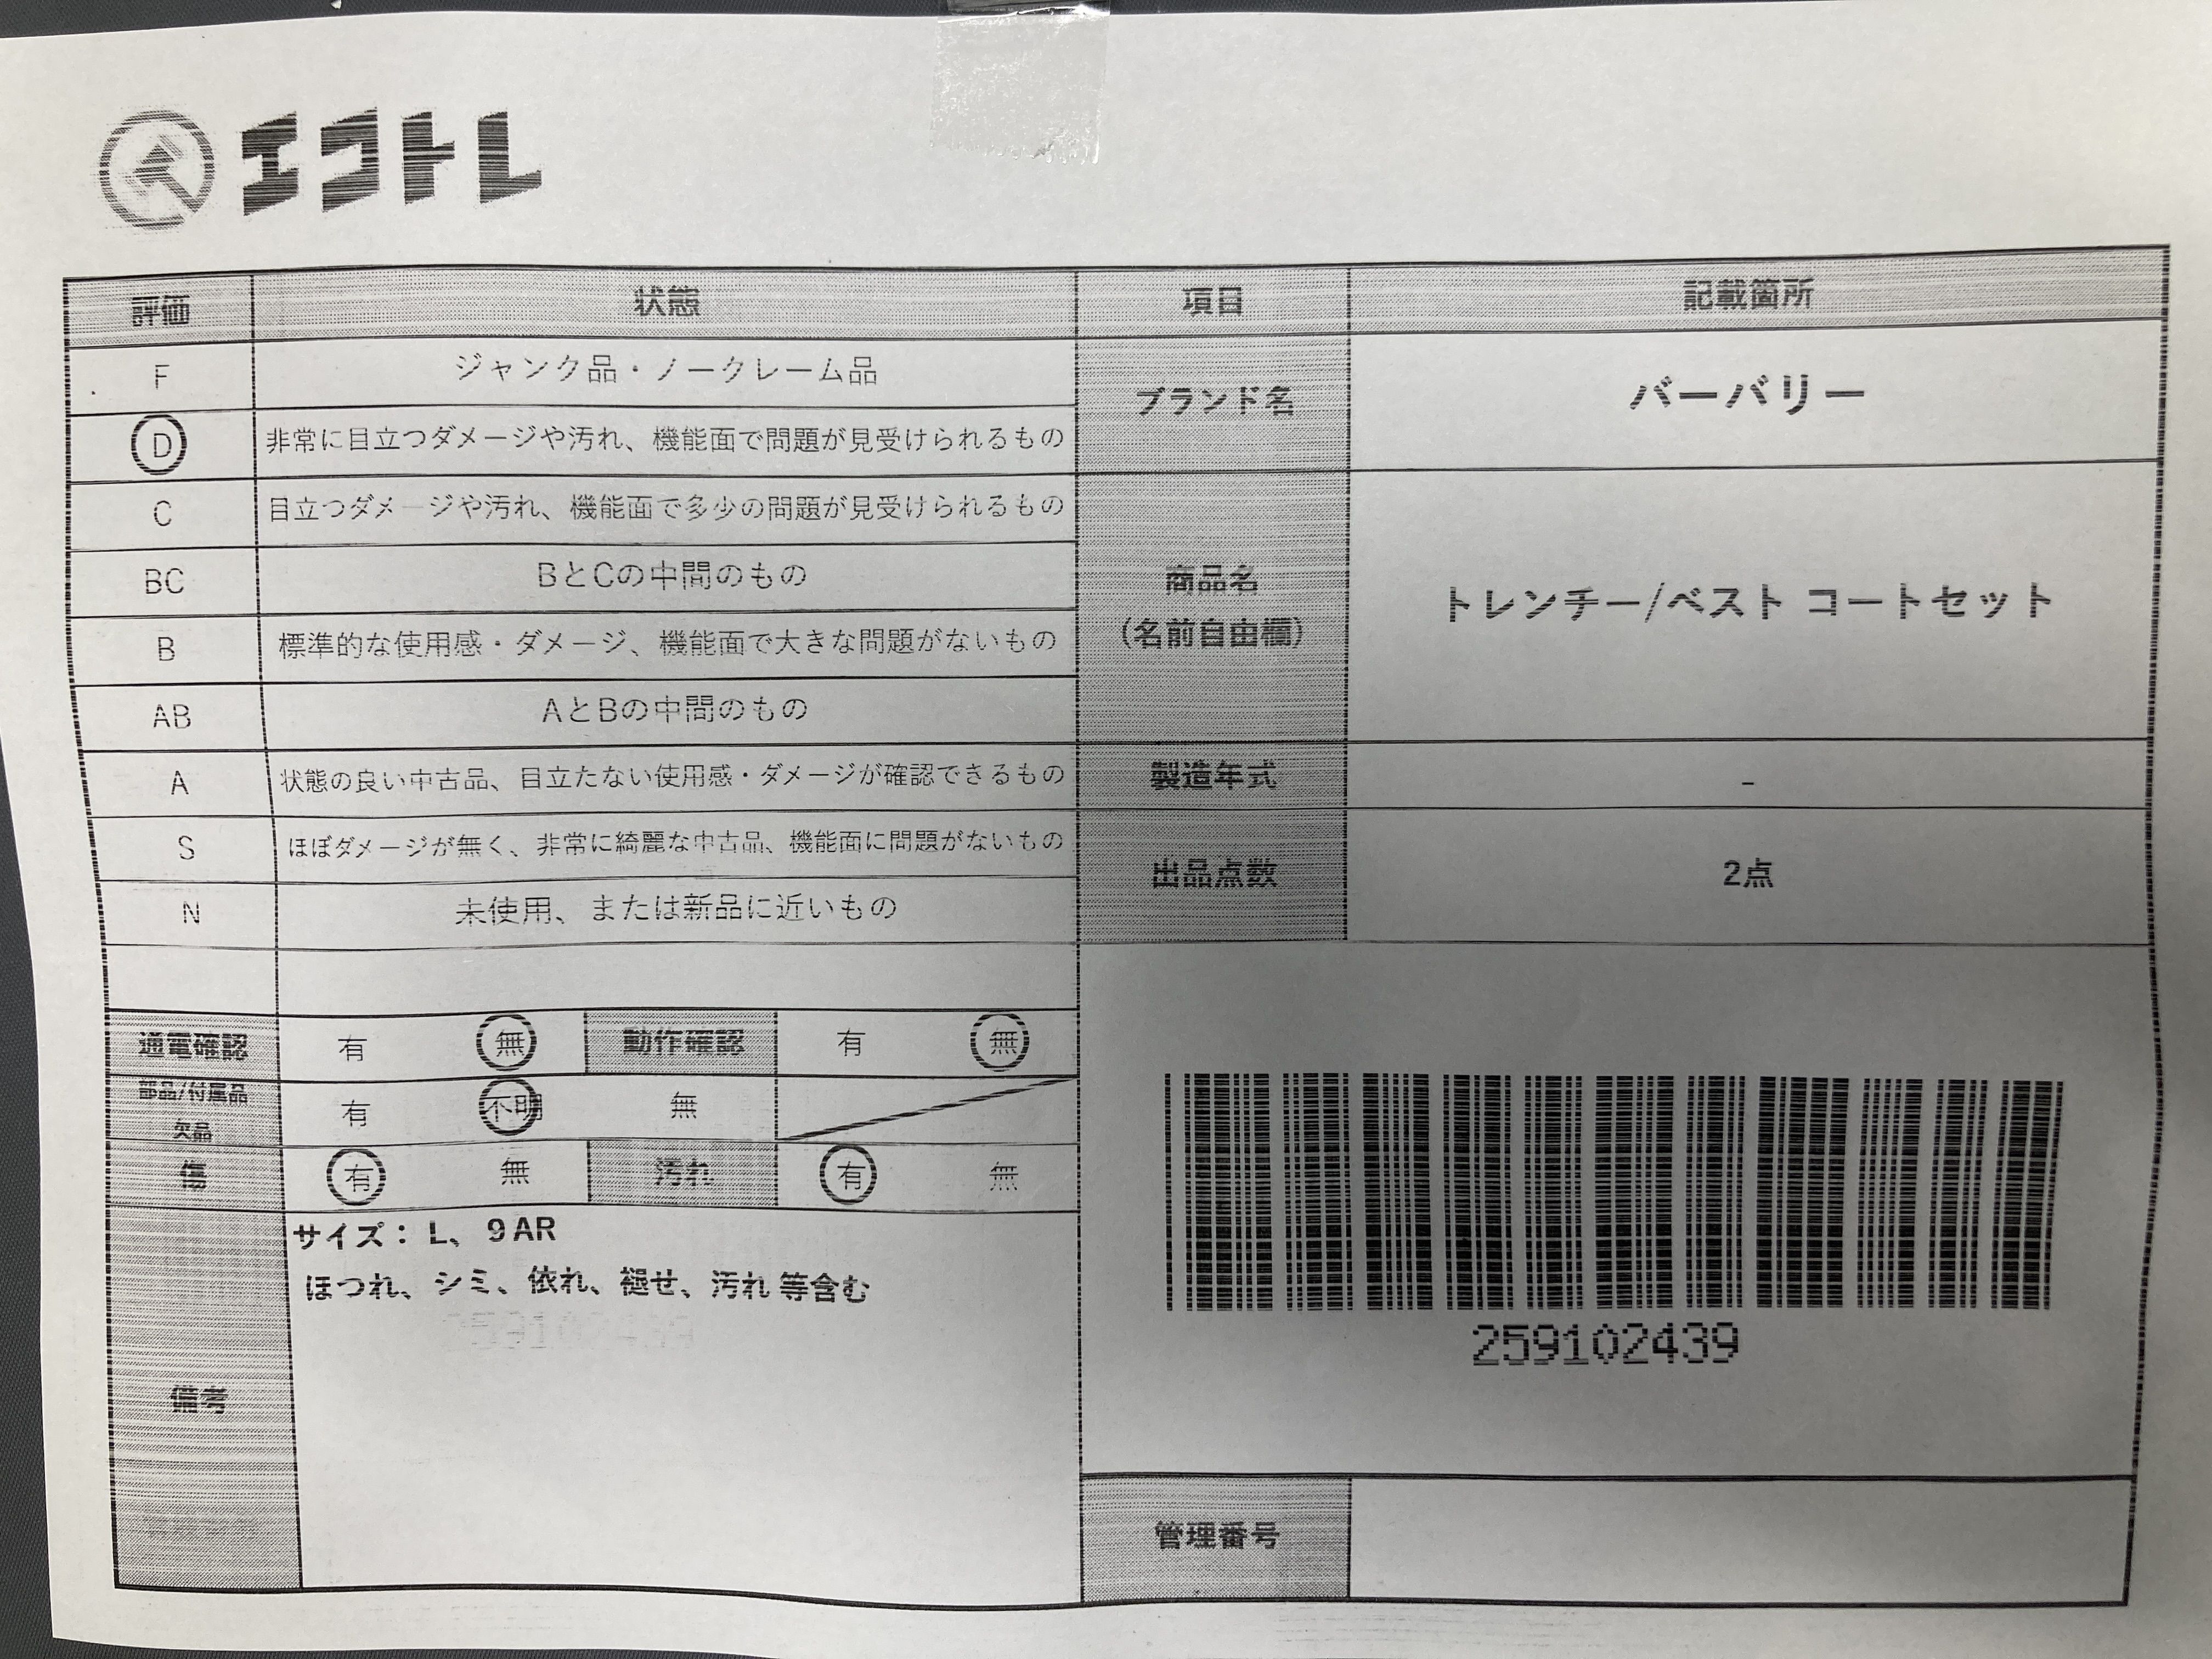 エコトレ
評価 状態 項目 記載箇所
F ジャンク品・ノークレーム品
ブランド名 バーバリー
D 非常に目立つダメージや汚れ、機能面で問題が見受けられるもの
C 目立つダメージや汚れ、機能面で多少の問題が見受けられるもの
BC BとCの中間のもの
商品名
(名前自由欄)
トレンチー/ベスト コートセット
B 標準的な使用感・ダメージ、機能面で大きな問題がないもの
AB AとBの中間のもの
A 状態の良い中古品、目立たない使用感・ダメージが確認できるもの
製造年式 -
S ほぼダメージが無く、非常に綺麗な中古品、機能面に問題がないもの
出品点数 2点
N 未使用、または新品に近いもの
通電確認 有 無 動作確認 有 無
部品/付属品
欠品
有 不明 無
傷 有 無 汚れ 有 無
備考
サイズ： L、９AR
ほつれ、シミ、依れ、褪せ、汚れ 等含む
259102439
管理番号